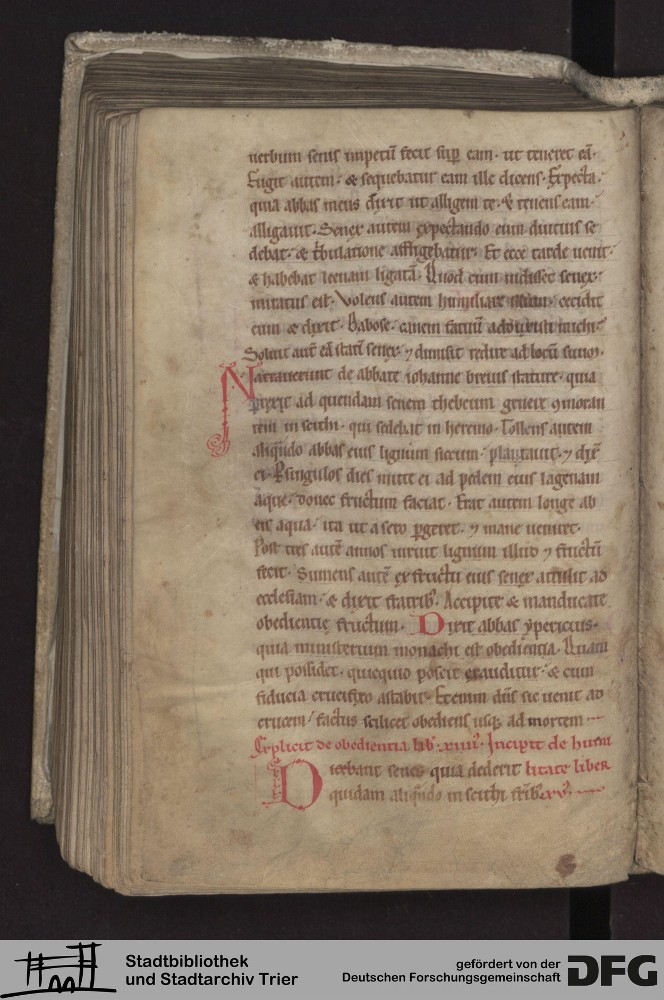 uerbum senis impetū fecit sup̄ eam · ut teneret eā ·
Fugit autem · & sequebatur eam ille dicens · Expecta ·
quia abbas meus dixit ut alligem te · & tenens eam ·
alligauit · Senex autem expectando eum diutius se
debat · & tribulatione affligebatur · Et ecce tarde uenit ·
& habebat leenam ligatā · Quod cum uidisset senex ·
miratus est · Volens autem humiliare · cecidit
eum & dixit · Babose · canem fatuū adduxisti michi ·
Soluit aut̄ eā statī senex · ⁊ dimisit redire ad locū suum ·
Narrauerunt de abbate iohanne breuis stature · quia
ꝑrexit ad quendam senem thebeum grueit ꝯmoran
tem in scithi · qui sedebat in heremo · Tollens autem
aliqn̄do abbas eius lignum siccum · plantauit · ⁊ dix̄
ei · Ꝑ singulos dies mitte ei ad pedem eius lagenam
aque · donec fructum faciat · Erat autem longe ab
eis aqua · ita ut a sero ꝑgeret · ⁊ mane ueniret ·
Post tres autē annos uiruit lignum illud ⁊ fructū
fecit · Sumens autē ex fructu eius senex attulit ad
ecclesiam · & dixit fratrib; · Accipite & manducate
obedientię fructum · Dixit abbas yperictus ·
quia ministerium monachi est obedientia · Quam
qui possidet · quicquid poscit exauditur · & cum
fiducia crucifixo astabit · Etenim dn̄s sic uenit ad
crucem / factus scilicet obediens usq; ad mortem
Explicit de obedientia lib̄ · xiiii · Incipit de humi
Dicebant senes quia dederit litate liber
quidam aliqn̄do in scithi fr̄ib; xv ·
Stadtbibliothek
und Stadtarchiv Trier
gefördert von der
Deutschen Forschungsgemeinschaft
DFG